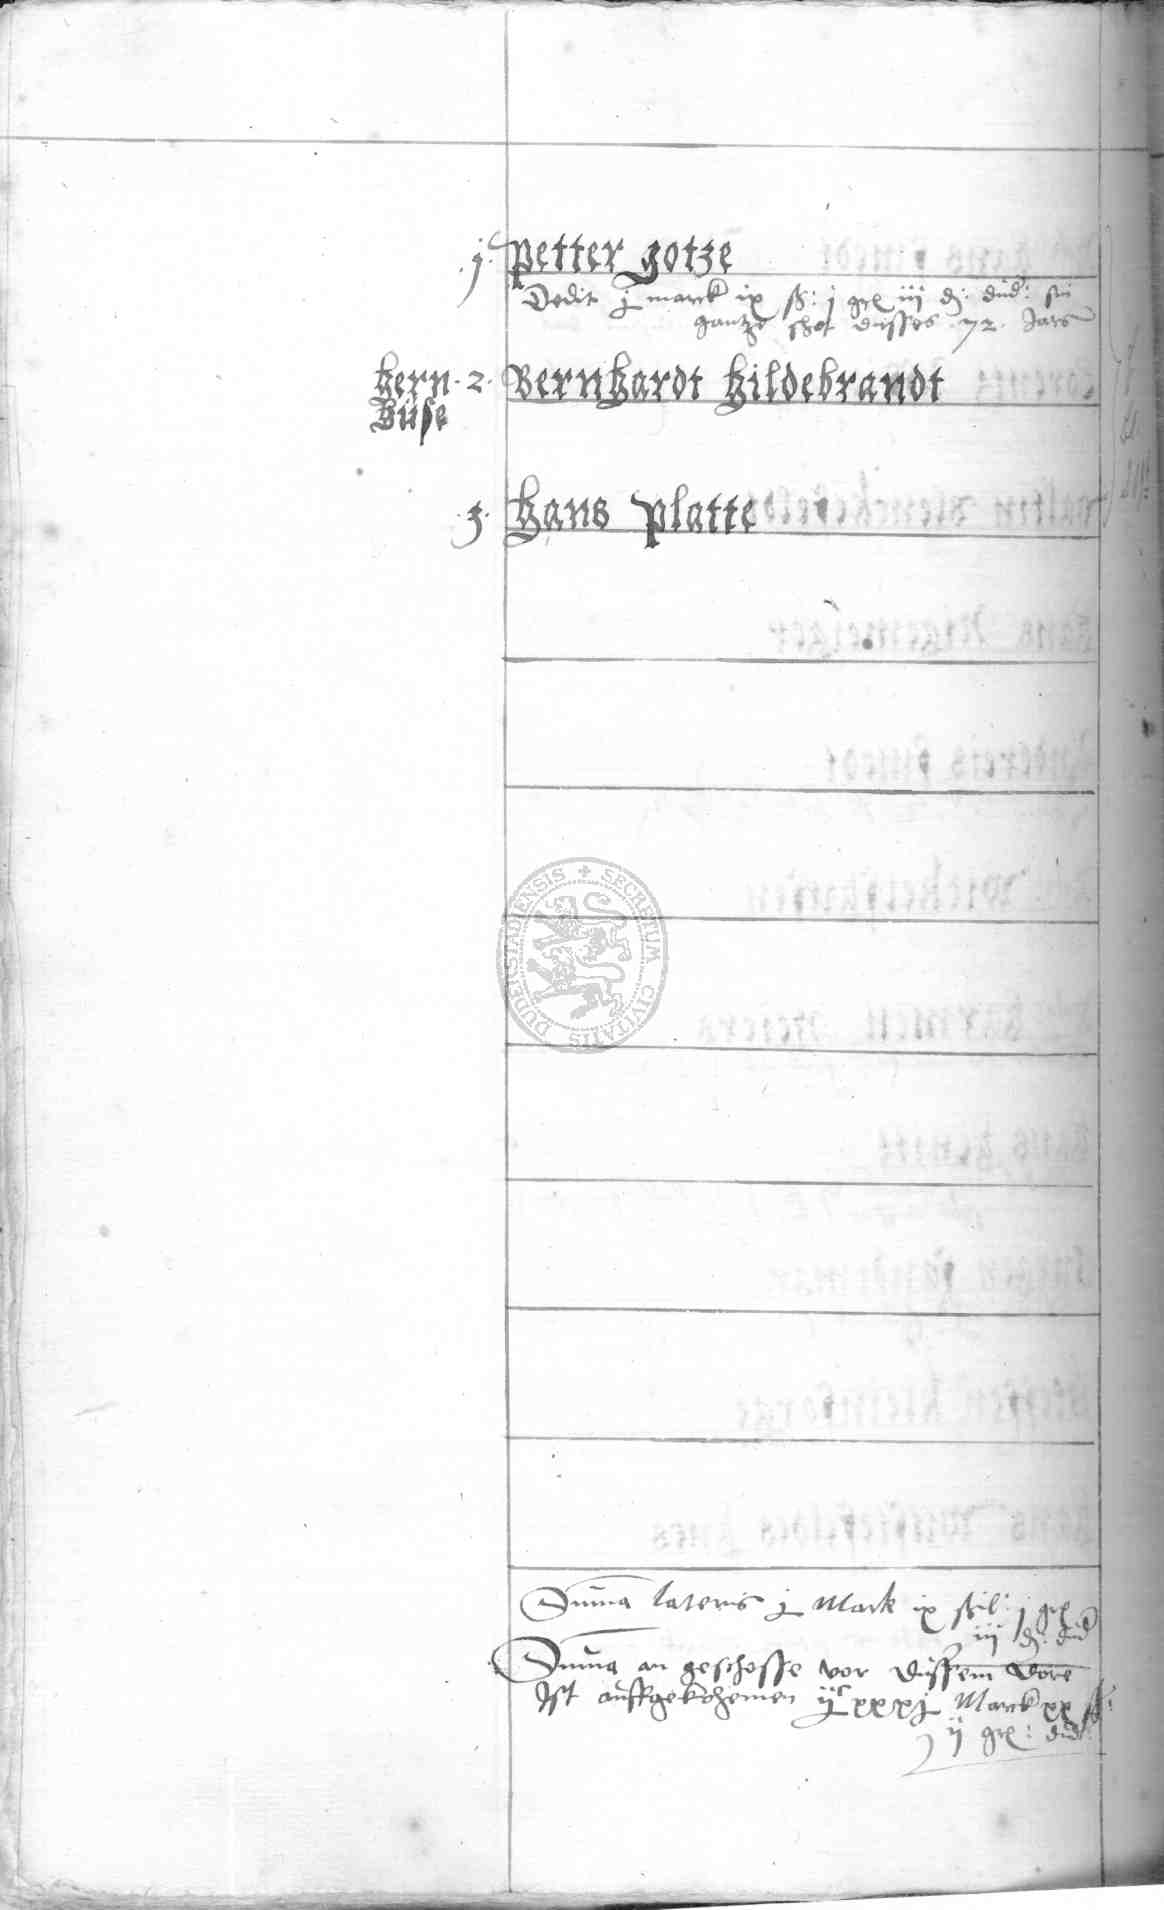 .j. petter gotze
Dedit j marck ix ß: j gr iii d: dud: sin
gantze schot dusses .72. Jars
hern .2. Bernhardt hildebrandt
huse
.3. hans platte
DUDERSTADIENSIS + SECRETUM CIVITATIS
Suma lateris j Mark ix ßil: j gr
iii d: dud
Suma an geschosse vor dussem Dore
Ist auffgekhomen ijc xxxj Marck xx ß:
ij gr: dud: